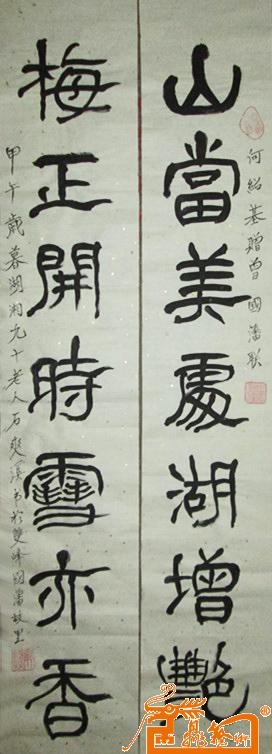 山當美處湖增艷
何紹基贈曾國藩聯
梅正開時雪亦香
甲午歲暮湖湘九十老人石爽溪书於雙峰國藩故里